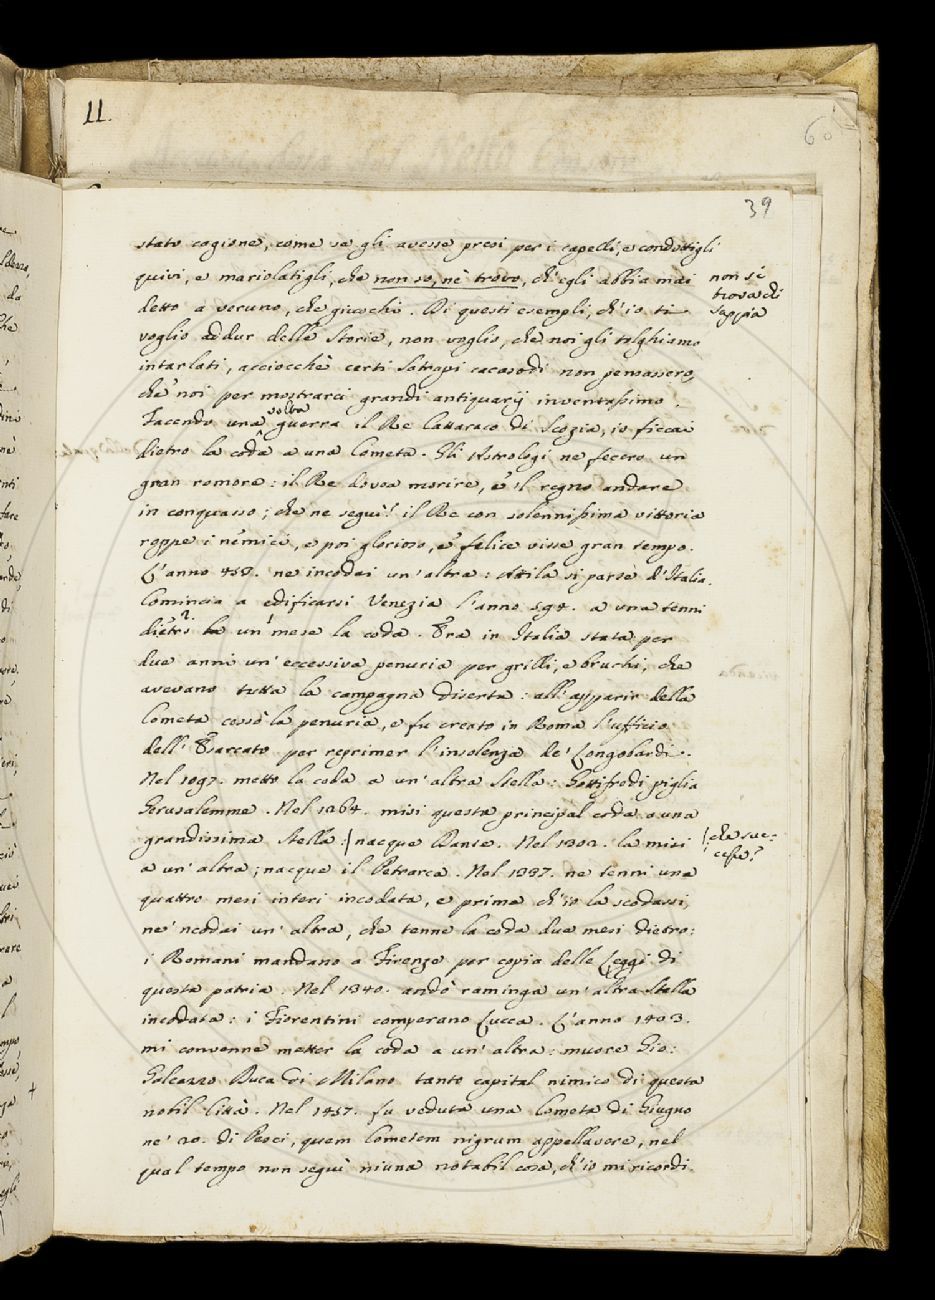 11.
60
39
stato cagione, come se gli avesse presi per i capelli, e condottigli
quivi, e mariolatigli, che non so, nè trovo, ch'egli abbia mai
non si
trova chi
sappia
detto a veruno, che giuochi. Di questi esempli, ch'io ti
voglio addur delle Storie, non voglio, che noi gli tolghiamo
intarlati, acciocchè certi Satrapi cacasodi non pensassero,
che noi per mostrarci grandi antiquarij inventassimo.
Facendo una volta guerra il Re Cattaraco di Scozia, io ficcai
dietro la coda a una Cometa. Gli Astrologi ne fecero un
gran romore: il Re dovea morire, e il regno andare
in conquasso; che ne seguì? il Re con solennissima vittoria
roppe i nemici, e poi glorioso, e felice visse gran tempo.
L'anno 457. ne incodai un'altra: Attila si parte d'Italia.
Comincia a edificarsi Venezia l'anno 594. a una tenni
dietro un mese la coda. Era in Italia stata per
due anni un'eccessiva penuria per grilli, e bruchi, che
avevano tutta la campagna diserta: all'apparir della
Cometa cessò la penuria, e fu creato in Roma l'ufficio
dell'Esarcato per reprimer l'insolenza de' Longobardi.
Nel 1097. metto la coda a un'altra Stella: Gottifredi piglia
Gerusalemme. Nel 1264. misi questa principal coda a una
grandissima Stella: nacque Dante. Nel 1302. la misi
che suc-
cesse?
a un'altra; nacque il Petrarca. Nel 1337. ne tenni una
quattro mesi interi incodata, e prima ch'io la scodassi,
ne 'ncodai un'altra, che tenne la coda due mesi dietro:
i Romani mandano a Firenze per copia delle Leggi di
questa patria. Nel 1340. andò raminga un'altra Stella
incodata: i Fiorentini comperano Lucca. L'anno 1403.
mi convenne metter la coda a un'altra: muore Gio:
Galeazzo Duca di Milano tanto capital nimico di questa
nobil Città. Nel 1457. fu veduta una Cometa di Giugno
ne' 20. di Pesci, quem Cometem nigrum appellavere, nel
qual tempo non seguì niuna notabil cosa, ch'io mi ricordi.